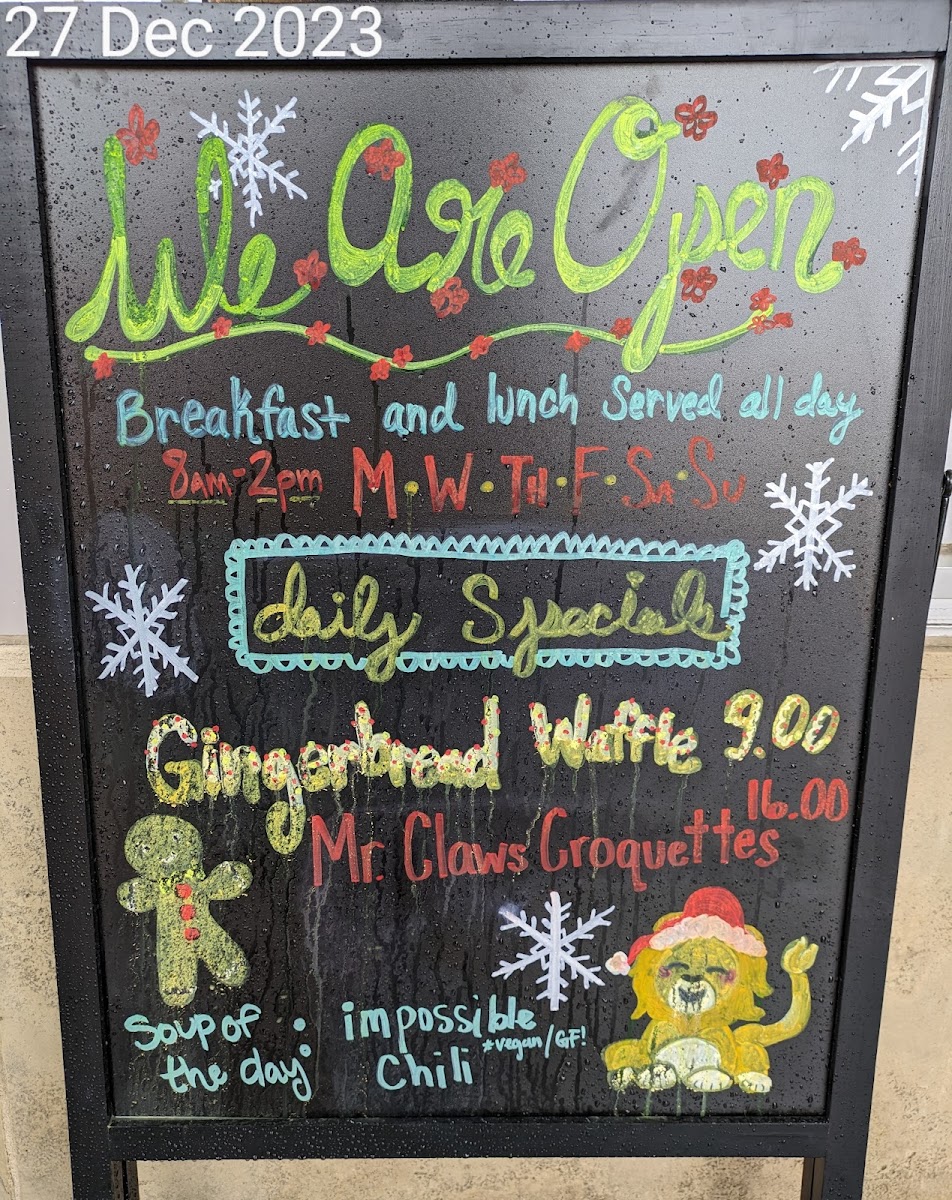 27 Dec 2023
We Are Open
Breakfast and lunch Served all day
8am-2pm M·W·TH·F·Sa·Su
daily Specials
Gingerbread Waffle 9.00
16.00
Mr. Claws Croquettes
Soup of the day: impossible Chili
*vegan/GF!